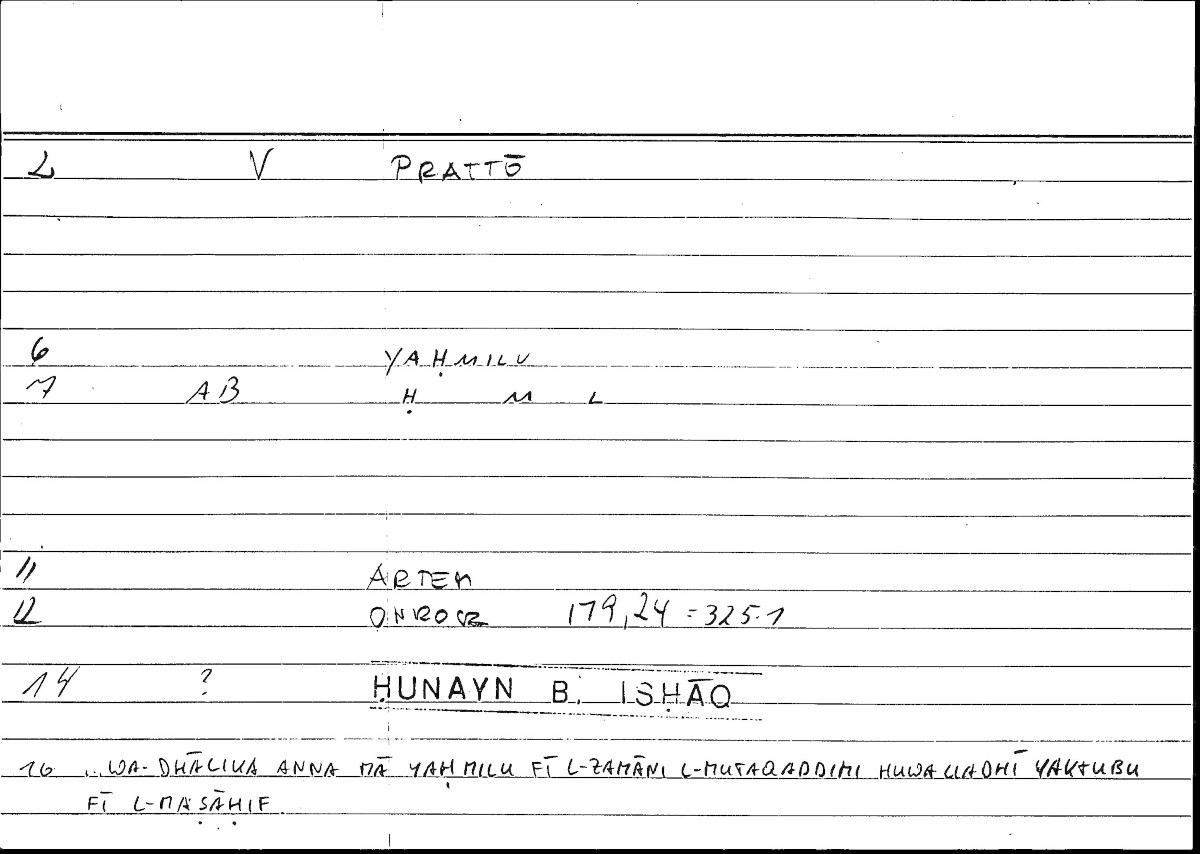 2 V PRATTŌ
6 YAḤMILU
7 AB Ḥ M L
11 ARTEM
12 ONROCR 179,24 = 325.1
14 ? ḤUNAYN B. ISḤĀQ
16 ..WA-DHĀLIKA ANNA MĀ YAḤMILU FĪ L-ZAMĀNI L-MUTAQADDIMI HUWA LLADHĪ YAKTUBU
FĪ L-MAṢĀḤIF.